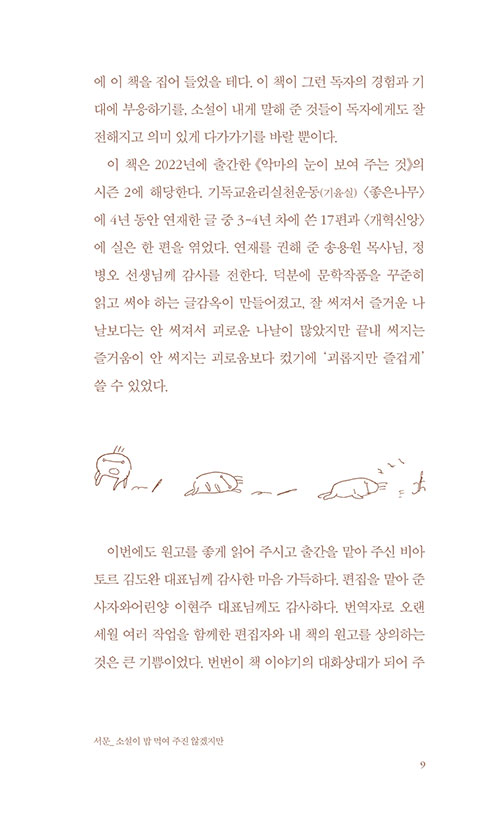 에 이 책을 집어 들었을 테다. 이 책이 그런 독자의 경험과 기
대에 부응하기를, 소설이 내게 말해 준 것들이 독자에게도 잘
전해지고 의미 있게 다가가기를 바랄 뿐이다.
이 책은 2022년에 출간한 《악마의 눈이 보여 주는 것》의
시즌 2에 해당한다. 기독교윤리실천운동(기윤실) 〈좋은나무〉
에 4년 동안 연재한 글 중 3-4년 차에 쓴 17편과 〈개혁신앙〉
에 실은 한 편을 엮었다. 연재를 권해 준 송용원 목사님, 정
병오 선생님께 감사를 전한다. 덕분에 문학작품을 꾸준히
읽고 써야 하는 글감옥이 만들어졌고, 잘 써져서 즐거운 나
날보다는 안 써져서 괴로운 나날이 많았지만 끝내 써지는
즐거움이 안 써지는 괴로움보다 컸기에 ‘괴롭지만 즐겁게’
쓸 수 있었다.
이번에도 원고를 좋게 읽어 주시고 출간을 맡아 주신 비아
토르 김도완 대표님께 감사한 마음 가득하다. 편집을 맡아 준
사자와어린양 이현주 대표님께도 감사하다. 번역자로 오랜
세월 여러 작업을 함께한 편집자와 내 책의 원고를 상의하는
것은 큰 기쁨이었다. 번번이 책 이야기의 대화상대가 되어 주
서문_ 소설이 밥 먹여 주진 않겠지만
9